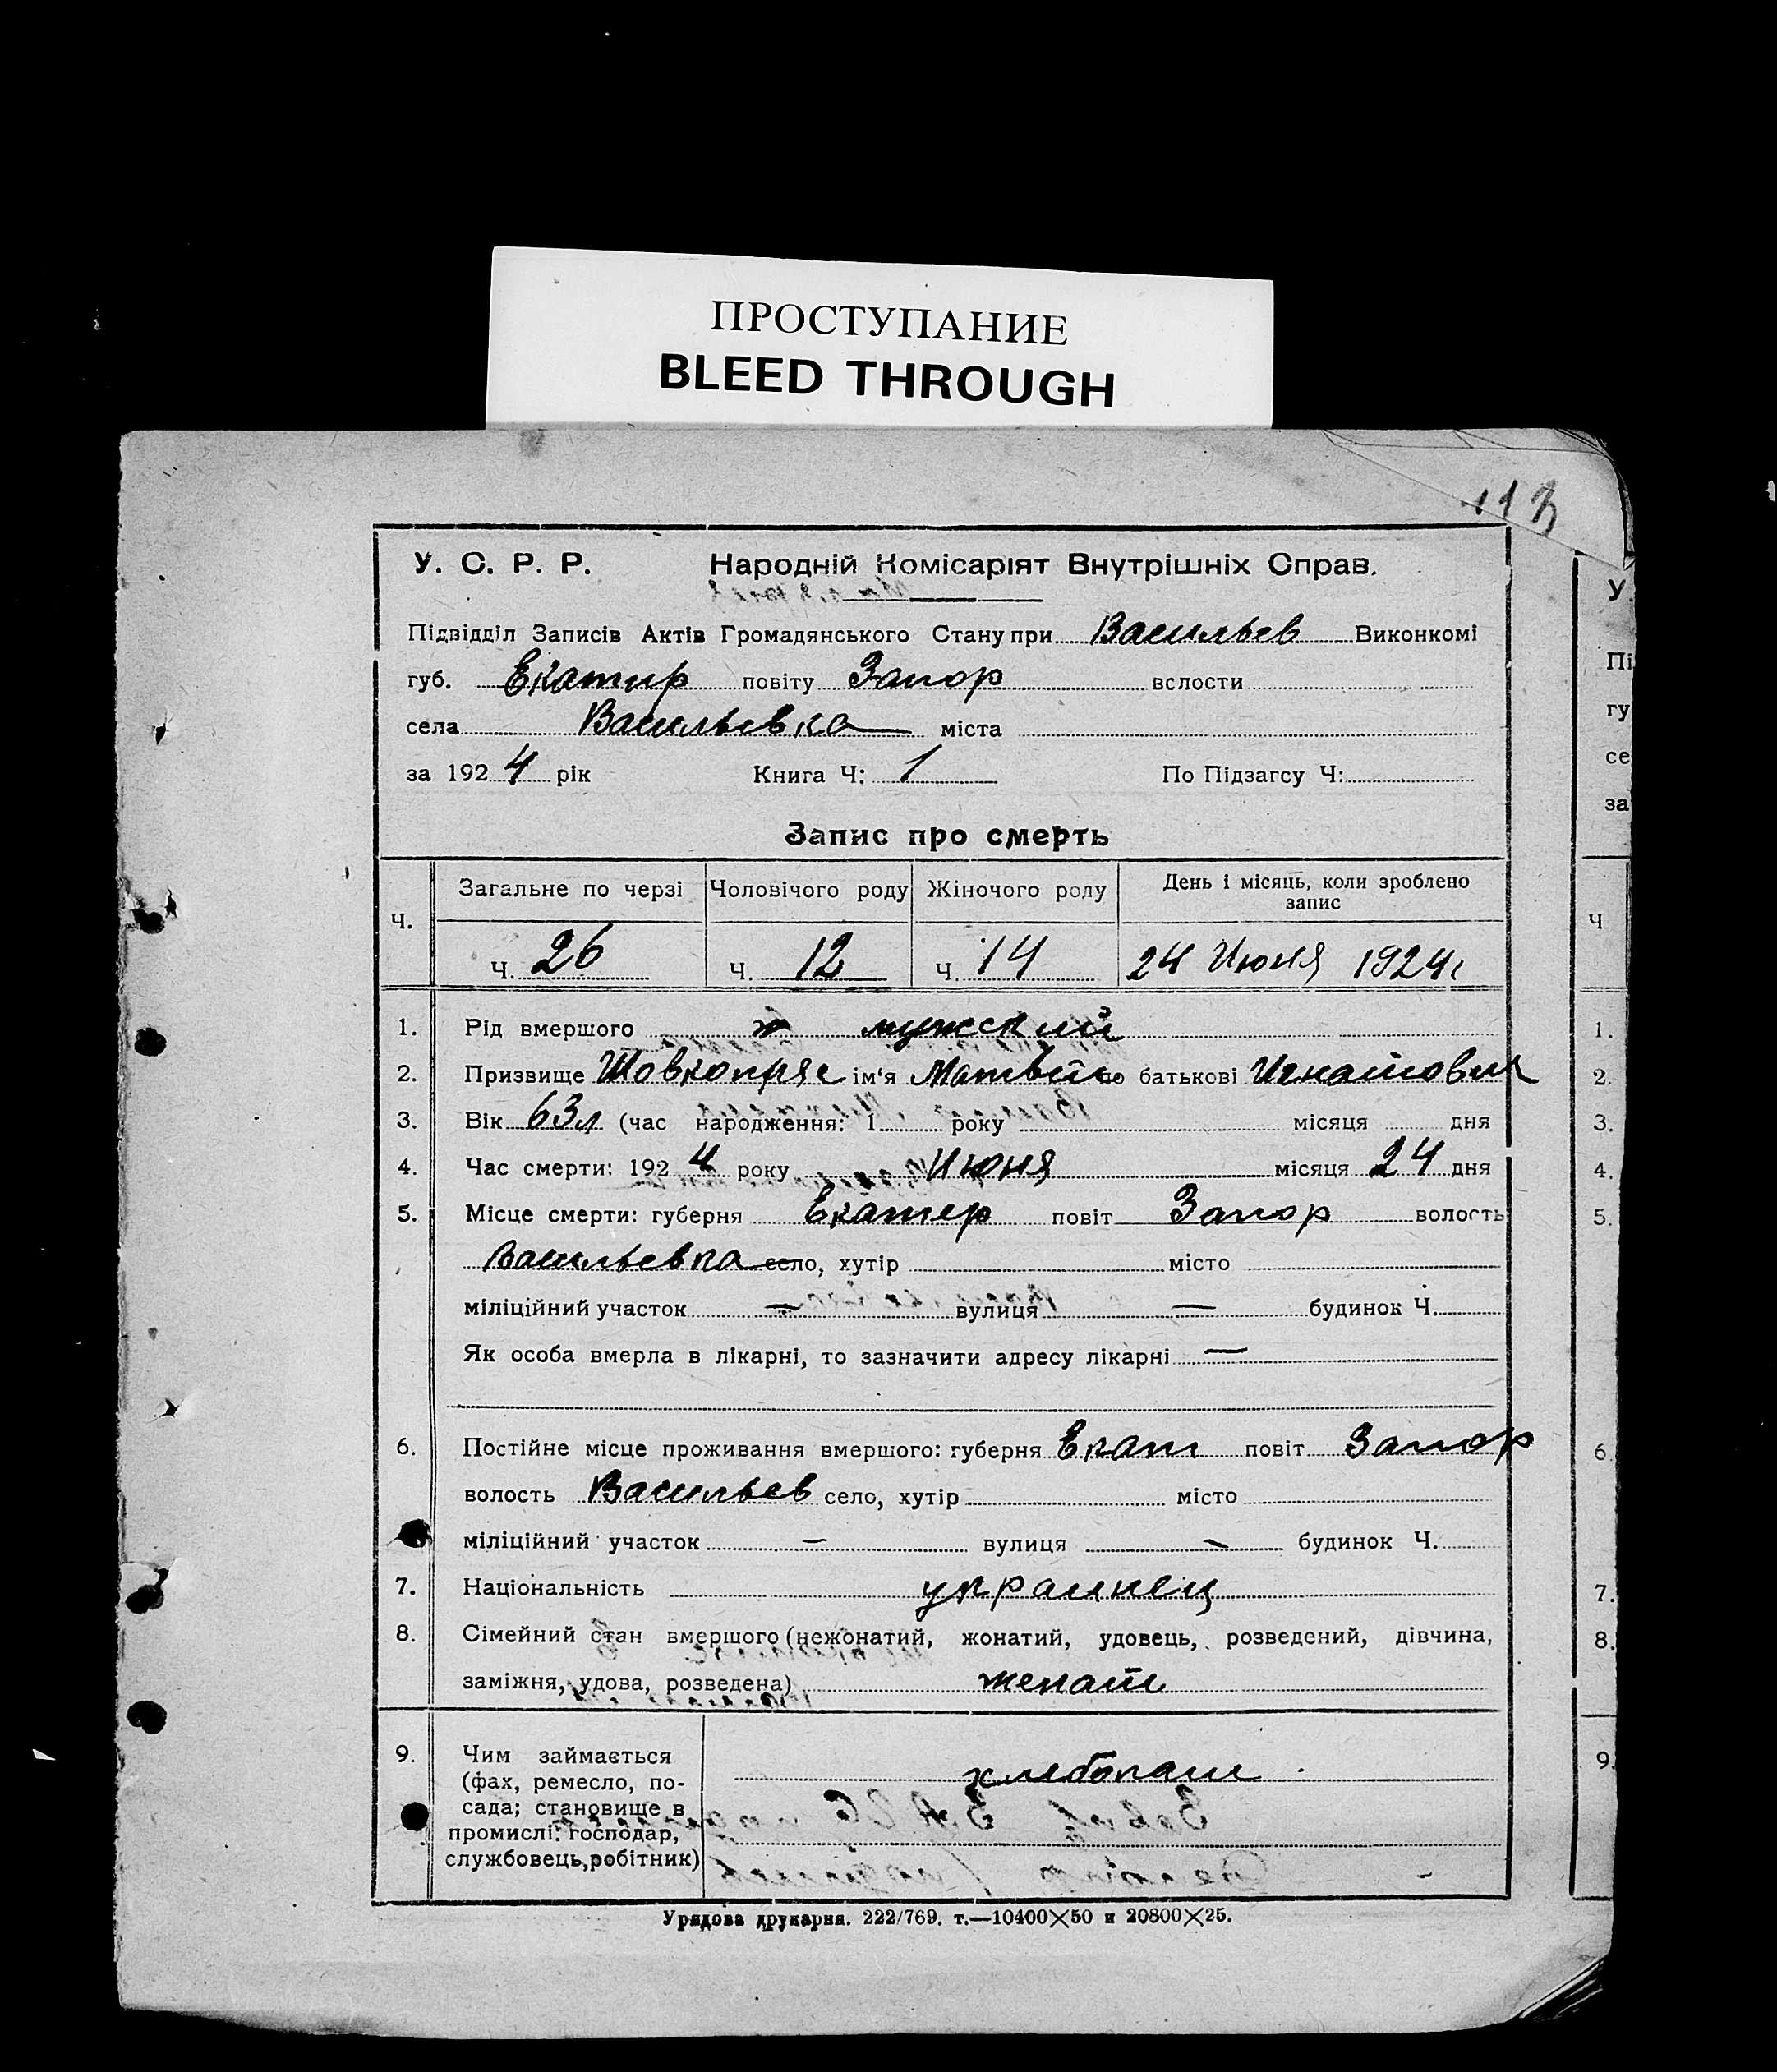 ПРОСТУПАНИЕ
BLEED THROUGH
113
У. С. Р. Р. Народній Комісаріят Внутрішніх Справ.
Підвідділ Записів Актів Громадянського Стану при Васильев Виконкомі
губ. Екатир повіту Запор вслости
села Васильевка міста
за 1924 рік Книга Ч: 1 По Підзагсу Ч:
Запис про смерть
Ч. Загальне по черзі Чоловічого роду Жіночого роду День і місяць, коли зроблено
запис
Ч. 26 Ч. 12 Ч. 14 24 Июня 1924г
1. Рід вмершого мужский
2. Призвище Шовкопряс ім'я Матвей по батькові Игнатович
3. Вік 63л (час народження: 1 року місяця дня
4. Час смерти: 1924 року Июня місяця 24 дня
5. Місце смерти: губерня Екатер повіт Запор волость
Васильевка село, хутір місто
міліційний участок — вулиця — будинок Ч.
Як особа вмерла в лікарні, то зазначити адресу лікарні —
6. Постійне місце проживання вмершого: губерня Екат повіт Запор
волость Васильев село, хутір місто
міліційний участок — вулиця — будинок Ч.
7. Національність украинец
8. Сімейний стан вмершого (нежонатий, жонатий, удовець, розведений, дівчина,
заміжня, удова, розведена) женат
9. Чим займається хлебопаш
(фах, ремесло, по-
сада; становище в
промислі: господар,
службовець, робітник)
Урядова друкарня. 222/769. т.—10400×50 и 20800×25.
У.
Пі
гу
се
за
Ч
1.
2.
3.
4.
5.
6
7.
8.
9.